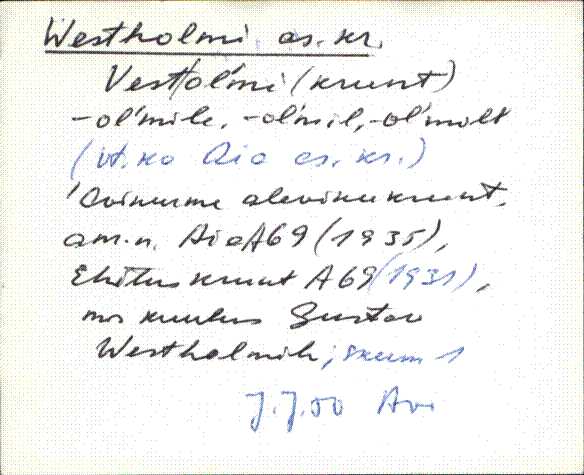 Westholmi as. kr.
Vestol'mi (krunt)
-ol'mile, -ol'mil, -ol'milt
(vt. ka Aia as. kr.)
'Avinurme alevikukrunt,
am. n. Aia A69 (1935),
Ehituskrunt A69 (1931),
mis kuulus Gustav
Westholmile;
J. J. 50 Avi